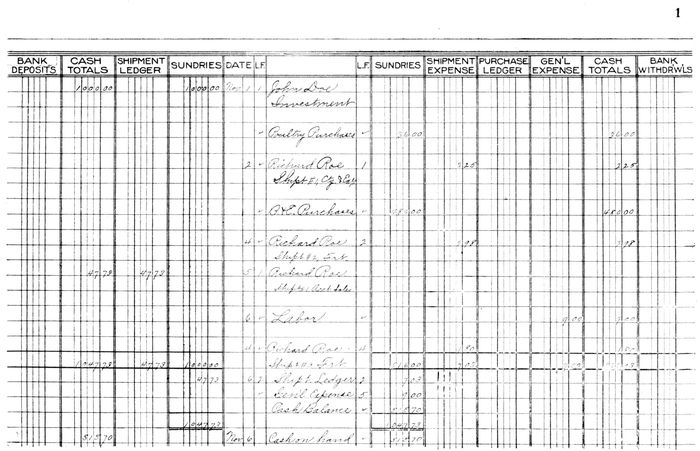 1
BANK DEPOSITS CASH TOTALS SHIPMENT LEDGER SUNDRIES DATE L.F. L.F. SUNDRIES SHIPMENT EXPENSE PURCHASE LEDGER GEN'L EXPENSE CASH TOTALS BANK WITHDRW'LS
1000.00 1000.00 Nov. 1 1 John Doe
Investment
✓ Poultry Purchases ✓ 26.00 26.00
2 ✓ Richard Roe 1 2.25 2.25
Shipt #1,
✓ Purchases ✓ 480.00 480.00
4 ✓ Richard Roe 2 2.98 2.98
Shipt #2, Frt.
47.73 47.73 5 1 Richard Roe
Shipt #1 Acct Sales
6 ✓ Labor ✓ 9.00 9.00
Richard Roe 4 1.80 1.80
1047.73 47.73 1000.00 Frt 7.03
47.73 6 2 Shipt. Ledger 2 7.03
✓ Genl Expense 5 9.00
Cash Balance ✓ 515.70
1047.73 1047.73
515.70 Nov 6 Cash on hand ✓ 515.70